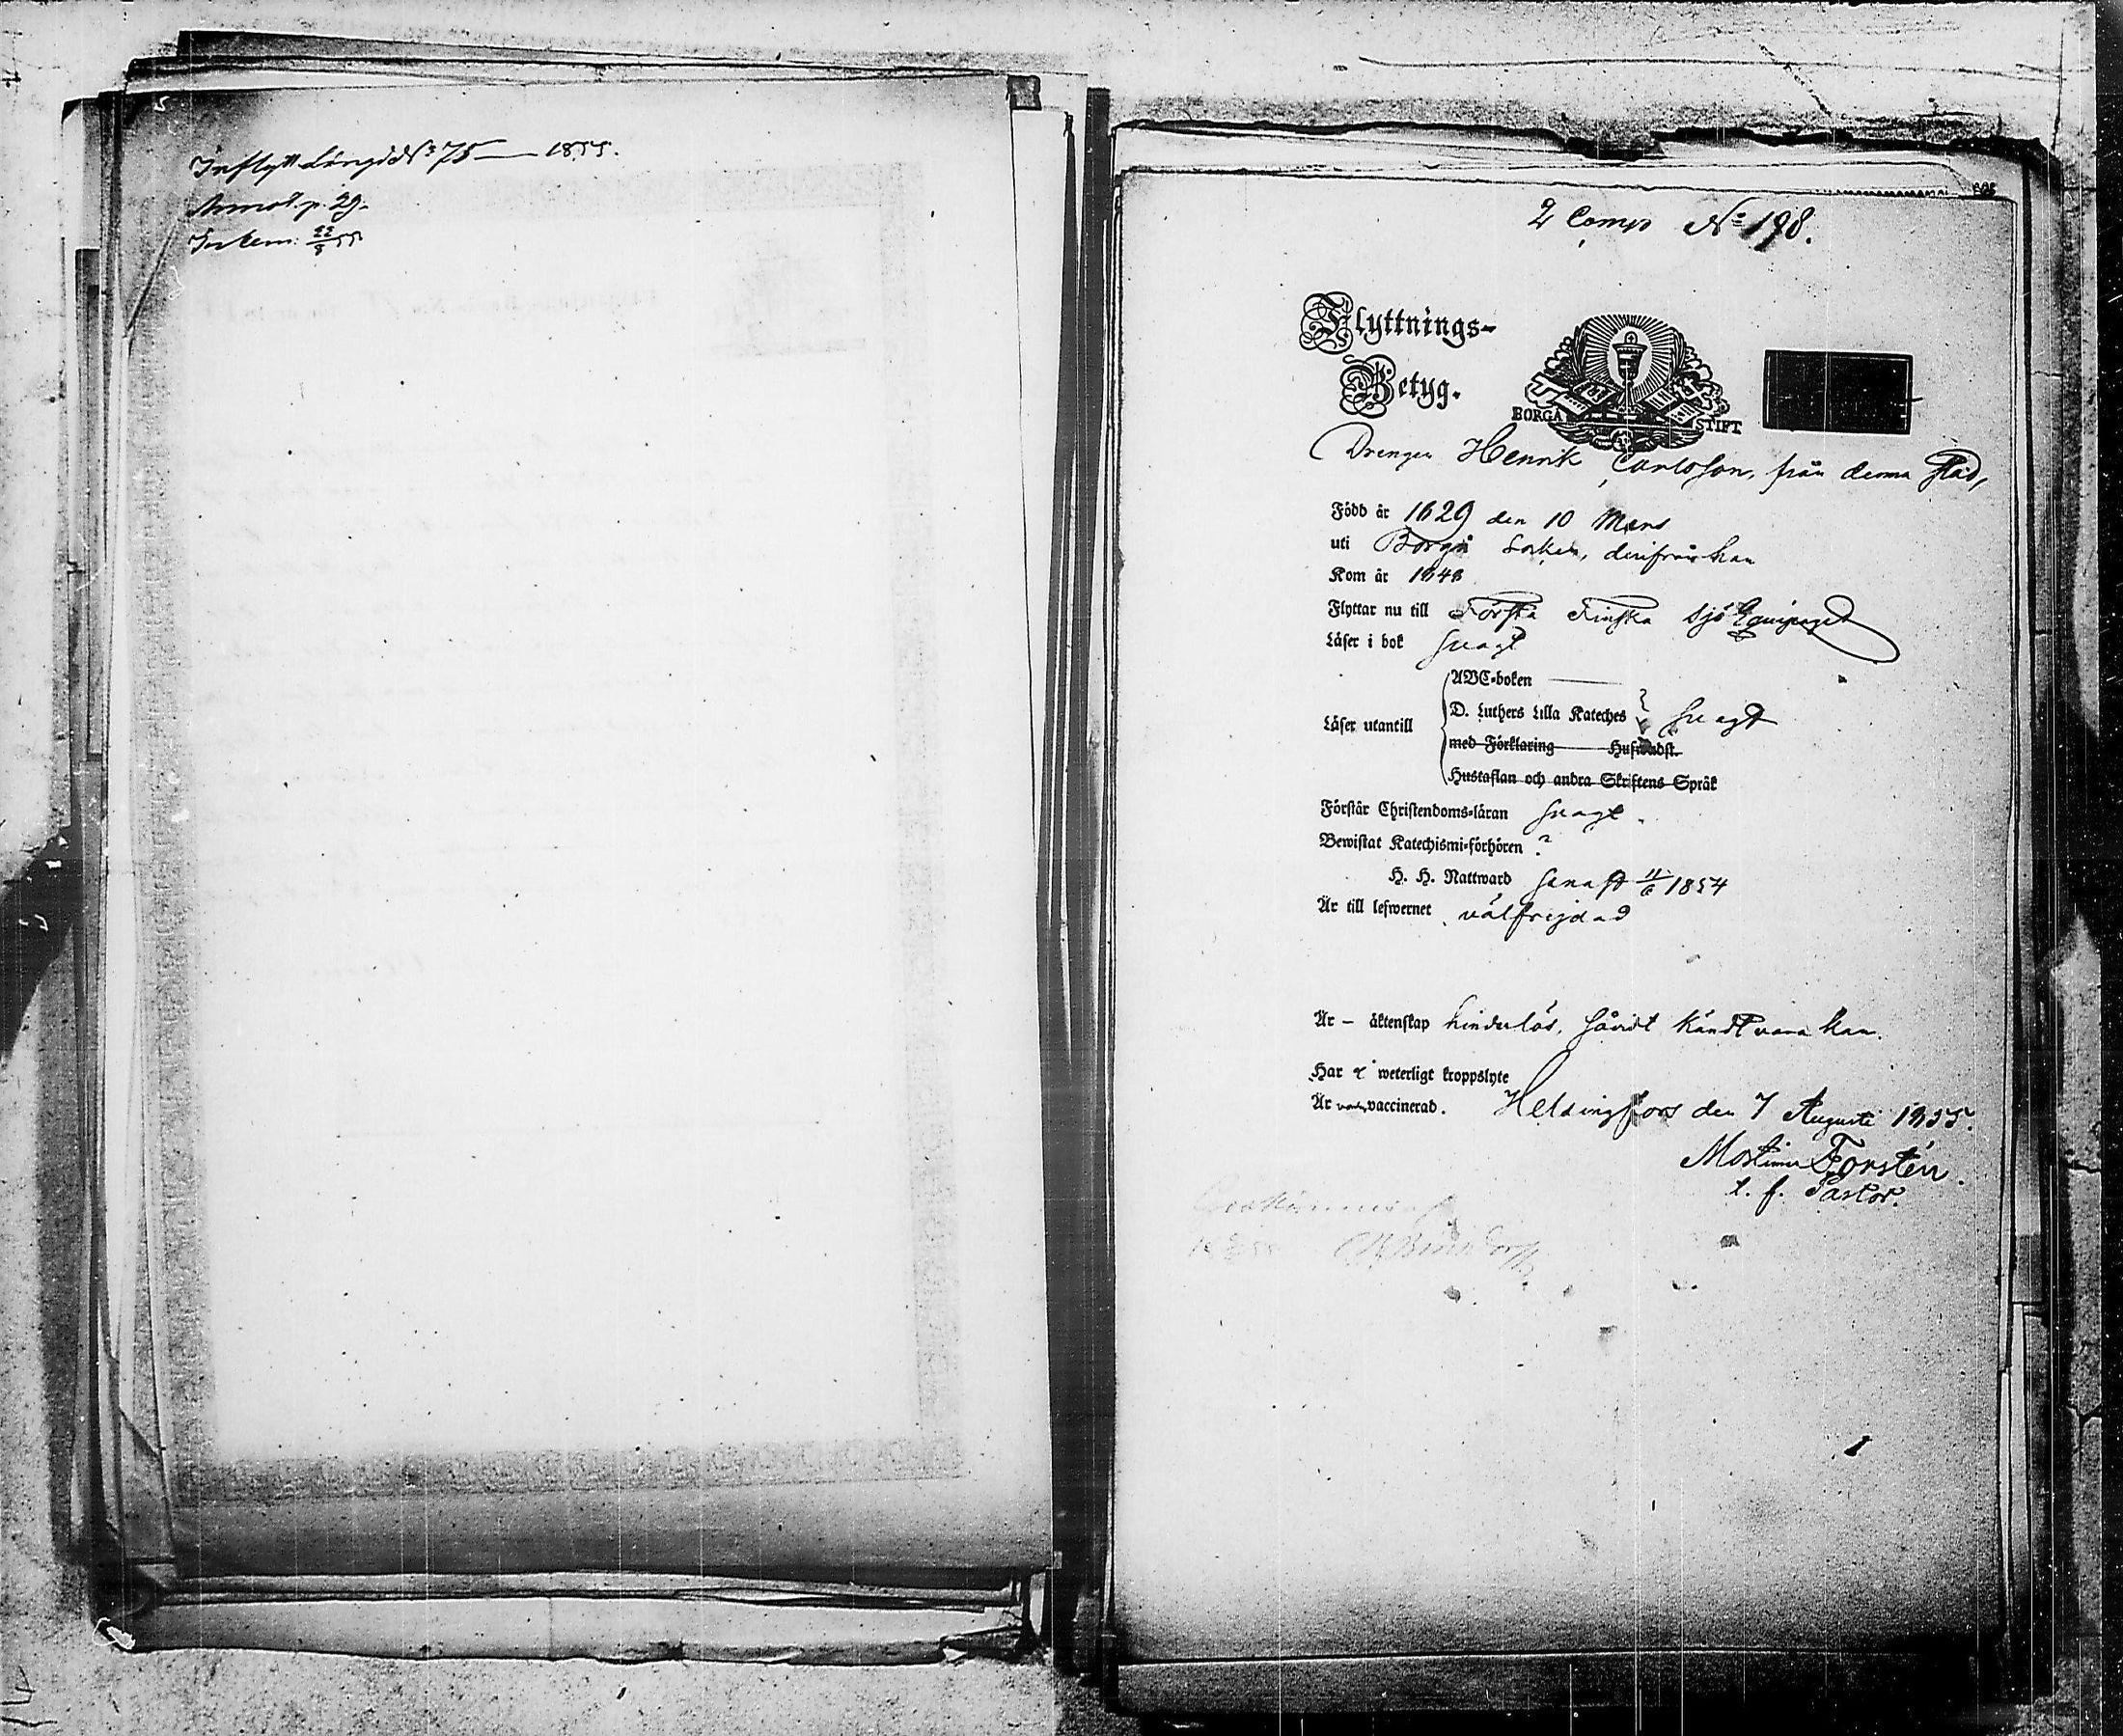 Inflytt Längd Nº 75 — 1855.
Annot. p. 29.
Inkem: 22/8 55
2 Comp Nº 198.
Flyttnings-
Betyg.
BORGÅ STIFT
Drengen Henrik Carlsson, från denna stad,
Född år 1829 den 10 Mars
uti Borgå Socken, derifrån han
Kom år 1848
Flyttar nu till Första Finska Sjö Equipaget
Läser i bok svagt
ABC-boken
Läser utantill D. Luthers Lilla Kateches svagt
med Förklaring Husandst.
Hustaflan och andra Skriftens Språk
Förstår Christendoms-läran svagt.
Bewistat Katechismi-förhören ?
H. H. Nattward senast 11/6 1854
Är till lefwernet välfrejdad
Är – äktenskap hinderlös, såvidt kändt vara kan.
Har ej weterligt kroppslyte
Är vaccinerad. Helsingfors den 7 Augusti 1855.
Mortimer Forstén.
t. f. Pastor.